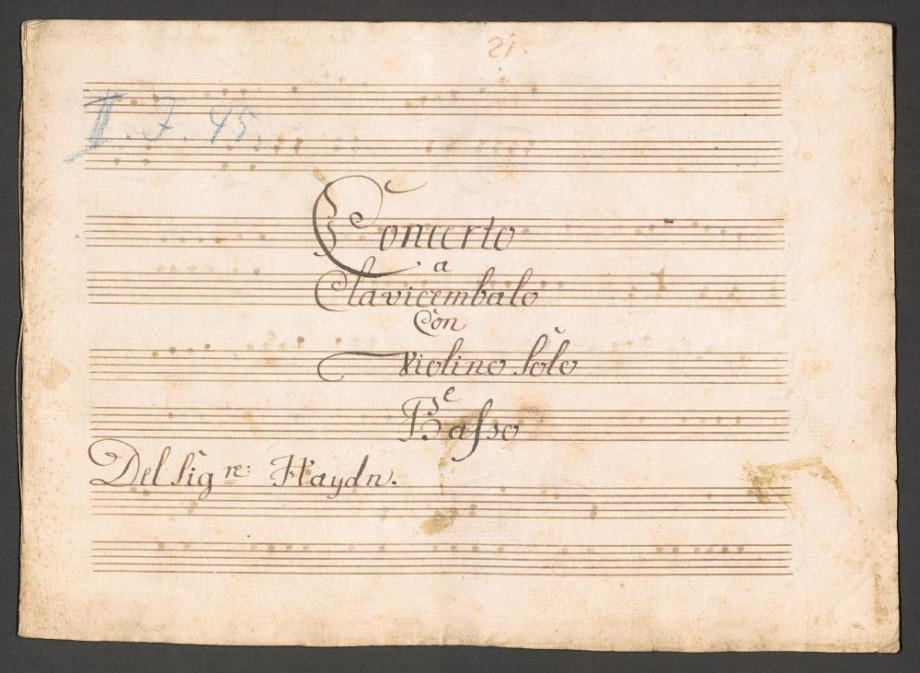 21.
II. J. 45.
Concerto
a
Clavicembalo
Con
Violino Solo
e
Basso
Del Sig re: Haydn.